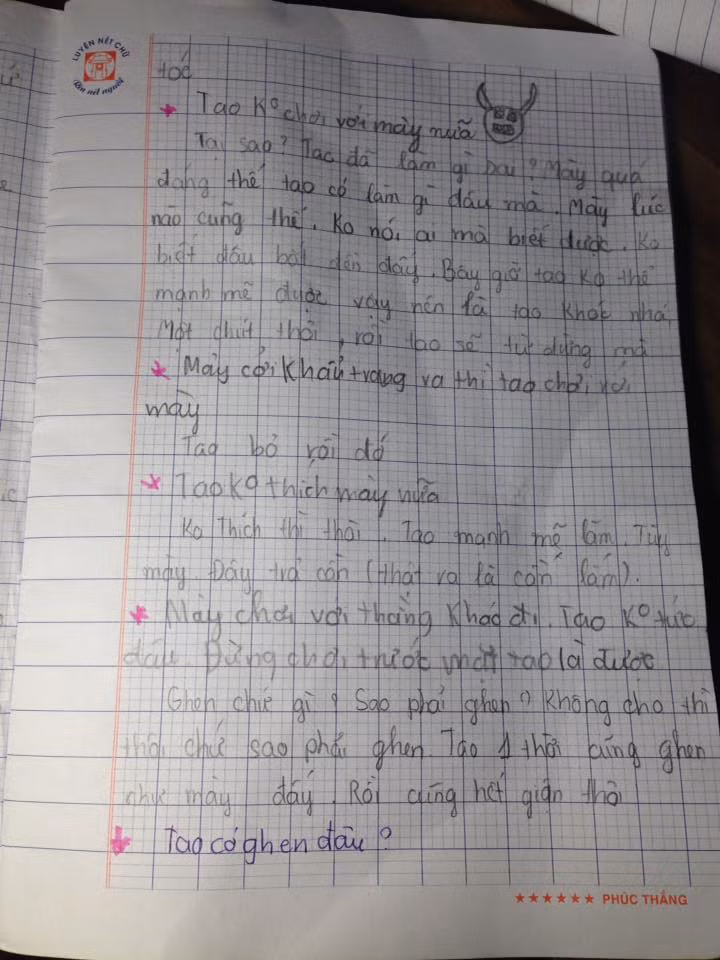 LUYỆN NÉT CHỮ
Rèn nết người
tóc
Tao Kº chơi với mày nữa
Tại sao? Tao đã làm gì đâu? Mày quá
đáng thế tao có làm gì đâu mà. Mày lúc
nào cũng thế. Ko nói ai mà biết được. Ko
biết đâu bắt đền đấy. Bây giờ tao ko thể
mạnh mẽ được vậy nên là tao khóc nhá
Một chút thôi, rồi tao sẽ tự đứng mà
Mày cởi khẩu trang ra thì tao chơi với
mày
Tao bỏ rồi đó
Tao Kº thích mày nữa
Ko thích thì thôi. Tao mạnh mẽ lắm. Tùy
mày. Đây trả cần (thật ra là cần lắm).
Mày chơi với thằng khác đi. Tao Kº tức
đâu. Đừng chơi trước mặt tao là được
Ghen chứ gì? Sao phải ghen? Không cho thì
thôi chứ sao phải ghen. Tao 1 thời cũng ghen
như mày đấy. Rồi cũng hết giận thôi
Tao có ghen đâu?
PHÚC THẮNG